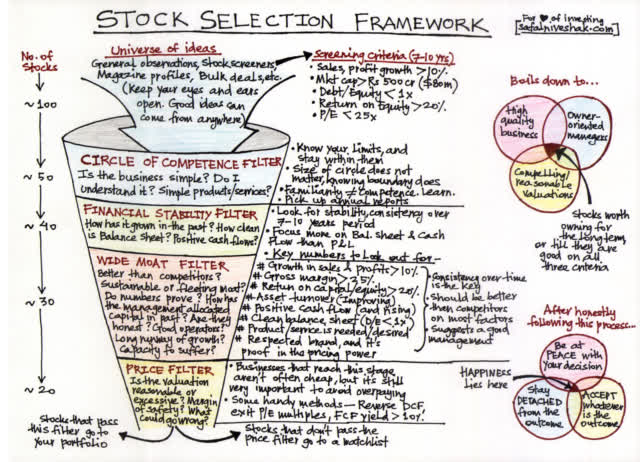 STOCK SELECTION FRAMEWORK
For ♥ of Investing
[safalniveshak.com]
No. of
Stocks
~100
~50
~40
~30
~20
Universe of ideas
General observations, Stock screeners,
Magazine profiles, Bulk deals, etc.
(Keep your eyes and ears
open. Good ideas can
come from anywhere)
Screening Criteria (7-10 yrs)
• Sales, profit growth >10%
• Mkt cap > Rs 500 cr ($80m)
• Debt/Equity <1x
• Return on Equity >20%
• P/E <25x
CIRCLE OF COMPETENCE FILTER
Is the business simple? Do I
understand it? Simple products/services?
• Know your limits, and
stay within them
• Size of circle does not
matter, knowing boundary does
• Familiarity ≠ Competence. Learn.
• Pick up annual reports
FINANCIAL STABILITY FILTER
How has it grown in the past? How clean
is Balance Sheet? Positive cash flows?
• Look for stability, consistency over
7-10 years period
• Focus more on Bal. Sheet & Cash
Flow than P&L
WIDE MOAT FILTER
Better than competitors?
Sustainable or fleeting moat?
Do numbers prove? How has
the management allocated
capital in past? Are they
honest? Good operators?
Long runway of growth?
Capacity to suffer?
• Key numbers to look out for-
# Growth in sales & profits >10%
# Gross margin >25%
# Return on capital/equity >20%
# Asset turnover (Improving)
# Positive cash flow (and Rising)
# Clean balance sheet (D/E <1x)
# Product/service is needed/desired
# Respected brand, and it's
proof in the pricing power
Consistency over-time
is the key
Should be better
than competitors
on most factors
Suggests a good
management
PRICE FILTER
Is the valuation
reasonable or
excessive? Margin
of safety? What
could go wrong?
• Businesses that reach this stage
aren't often cheap, but it's still
very important to avoid overpaying
• Some handy methods - Reverse DCF,
exit P/E multiples, FCF yield >10%
Stocks that pass
this filter go to
your portfolio
Stocks that don't pass the
price filter go to a watchlist
Boils down to...
High
quality
business
Owner-
oriented
managers
Compelling/
reasonable
valuations
Stocks worth
owning for
the long term,
or till they are
good on all
three criteria
After honestly
following this process...
Be at
PEACE with
your decision
HAPPINESS
lies here
Stay
DETACHED
from the
outcome
ACCEPT
whatever
is the
outcome